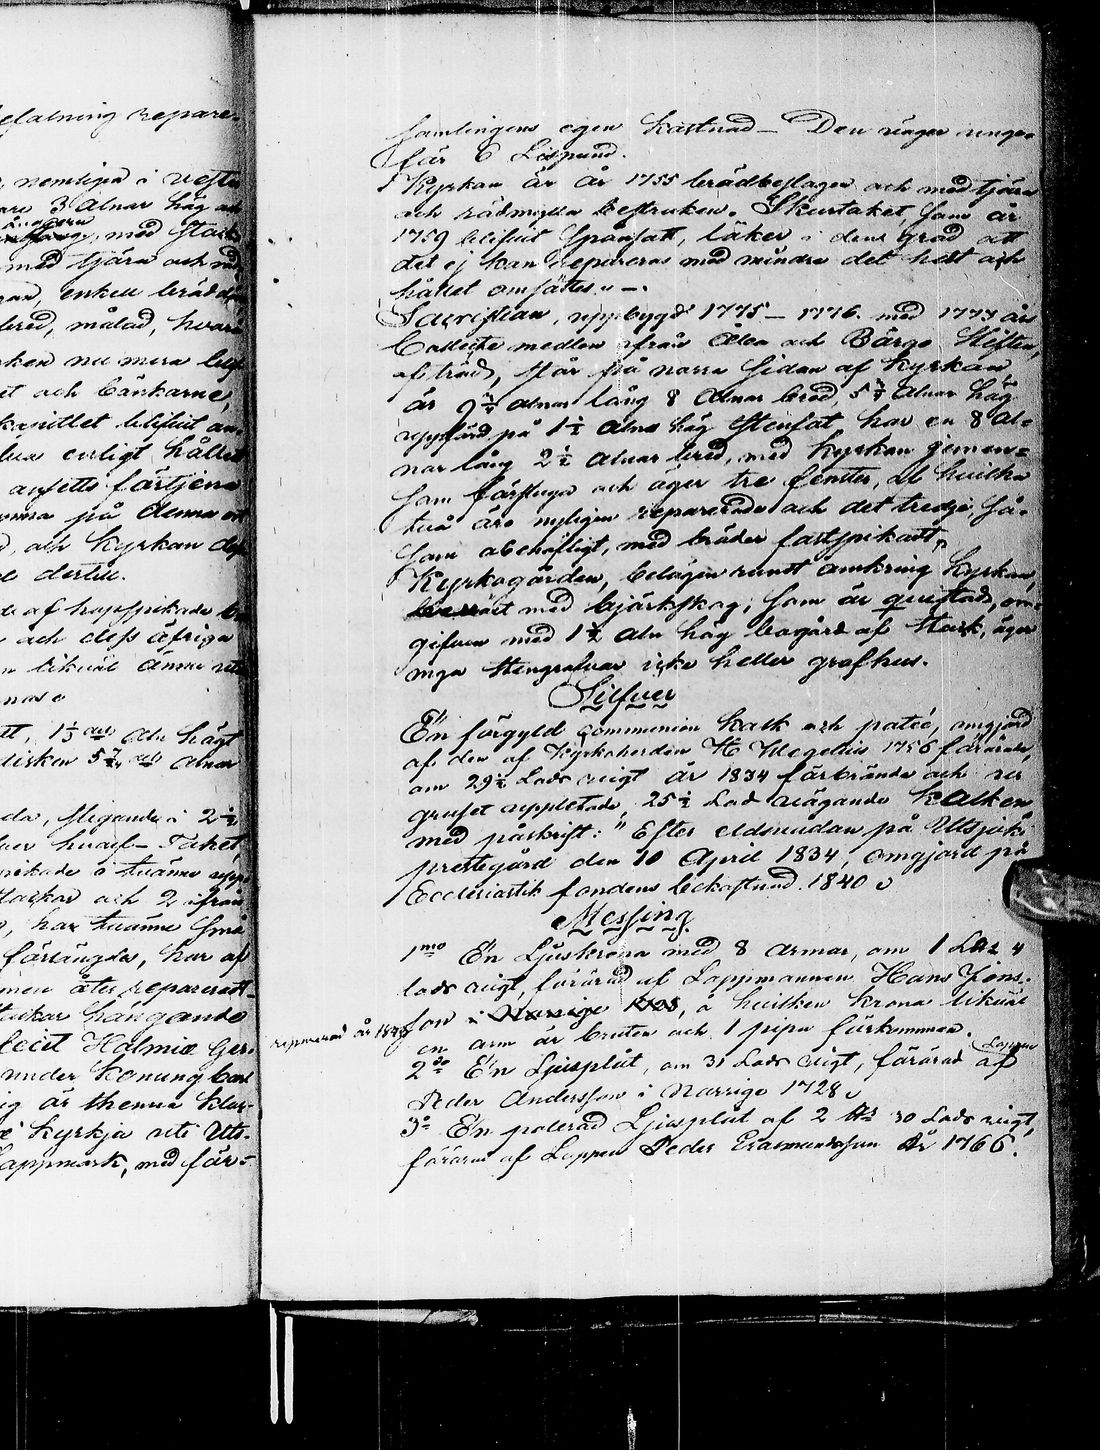 efalning repare-
nemligen i vestu
3 alnar hög och
med stock
med tjära och
enkell bräd
bred, målad, hvar
ken nu mera blif
et och bänkarne,
kapitlet blifvit an-
enligt hållet
ansetts förtjena
på denna ort
och Kyrkan
dertill.
af hopspikade
och dess öfriga
likväl ännu
nas.
1½ aln högt
disken alnar
stigande i 2½
hvalf - Taket,
spikade i tvänne
2 ifrån
har tvänne små
förlängda, har af
men åter reparerats
hängande
fecit Holmiæ
under Konung Carl
är thenna
Kyrkja uti Uts-
Lappmark, med för-
samlingens egen kostnad - Den väger unge-
för 6 Lispund.
Kyrkan är år 1755 brädbeslagen och med tjära
och rödmylla bestruken. Skurtaket som är
1759 blifvit spånsatt, läker i den grad att
det ej kan repareras med mindre det helt och
hållet omsättes. -
Sacristian, uppbygd 1775 - 1776 med 1773 års
Collecte medlen ifrån Åbo och Börgo Stiften,
af träd, står på norra sidan af Kyrkan,
är 9½ alnar lång 8 alnar bred, alnar hög
uppförd på 1½ alns hög stenfot har en 8 al-
nar lång 2½ alnar bred, med Kyrkan gemen-
sam förstuga och äger tre fenster, af hvilka
två äro nyligen reparerade och det tredje, så-
som obehöfligt, med bräder fastspikadt.
Kyrkogården, belägen rundt omkring kyrkan,
med björkskog, som är qvistad, om-
gifven med 1½ aln hög bogård af stock, äger
inga stengrafvar icke heller grafhus.
Silfver
En förgyld Communion kalk och paten, omgjord
af den af Kyrkoherden H Wegelius 1756 förärade
om 29½ Lods vigt år 1834 förbrände och ur
gruset uppletade 25½ Lod vägande kalken
med påskrift: "Efter eldsvådan på Utsjoki
prestegård den 10 April 1834, omgjord på
Ecclesiastik fondens bekostnad. 1840
Messing
1mo En Ljuskrona med 8 armar, om 1 4
lods vigt, förärad af Lappmannen Hans Jöns-
son i , å hvilken krona likväl
en arm är bruten och 1 pipa förkommen.
reparerad år 184
2do En Ljusplåt, om 31 Lods vigt, förärad af Lappen
Peder Andersson i Norrige 1728
3o En polerad Ljusplåt af 2 30 Lods vigt,
förärad af Lappen Peder Erasmundsson År 1766.